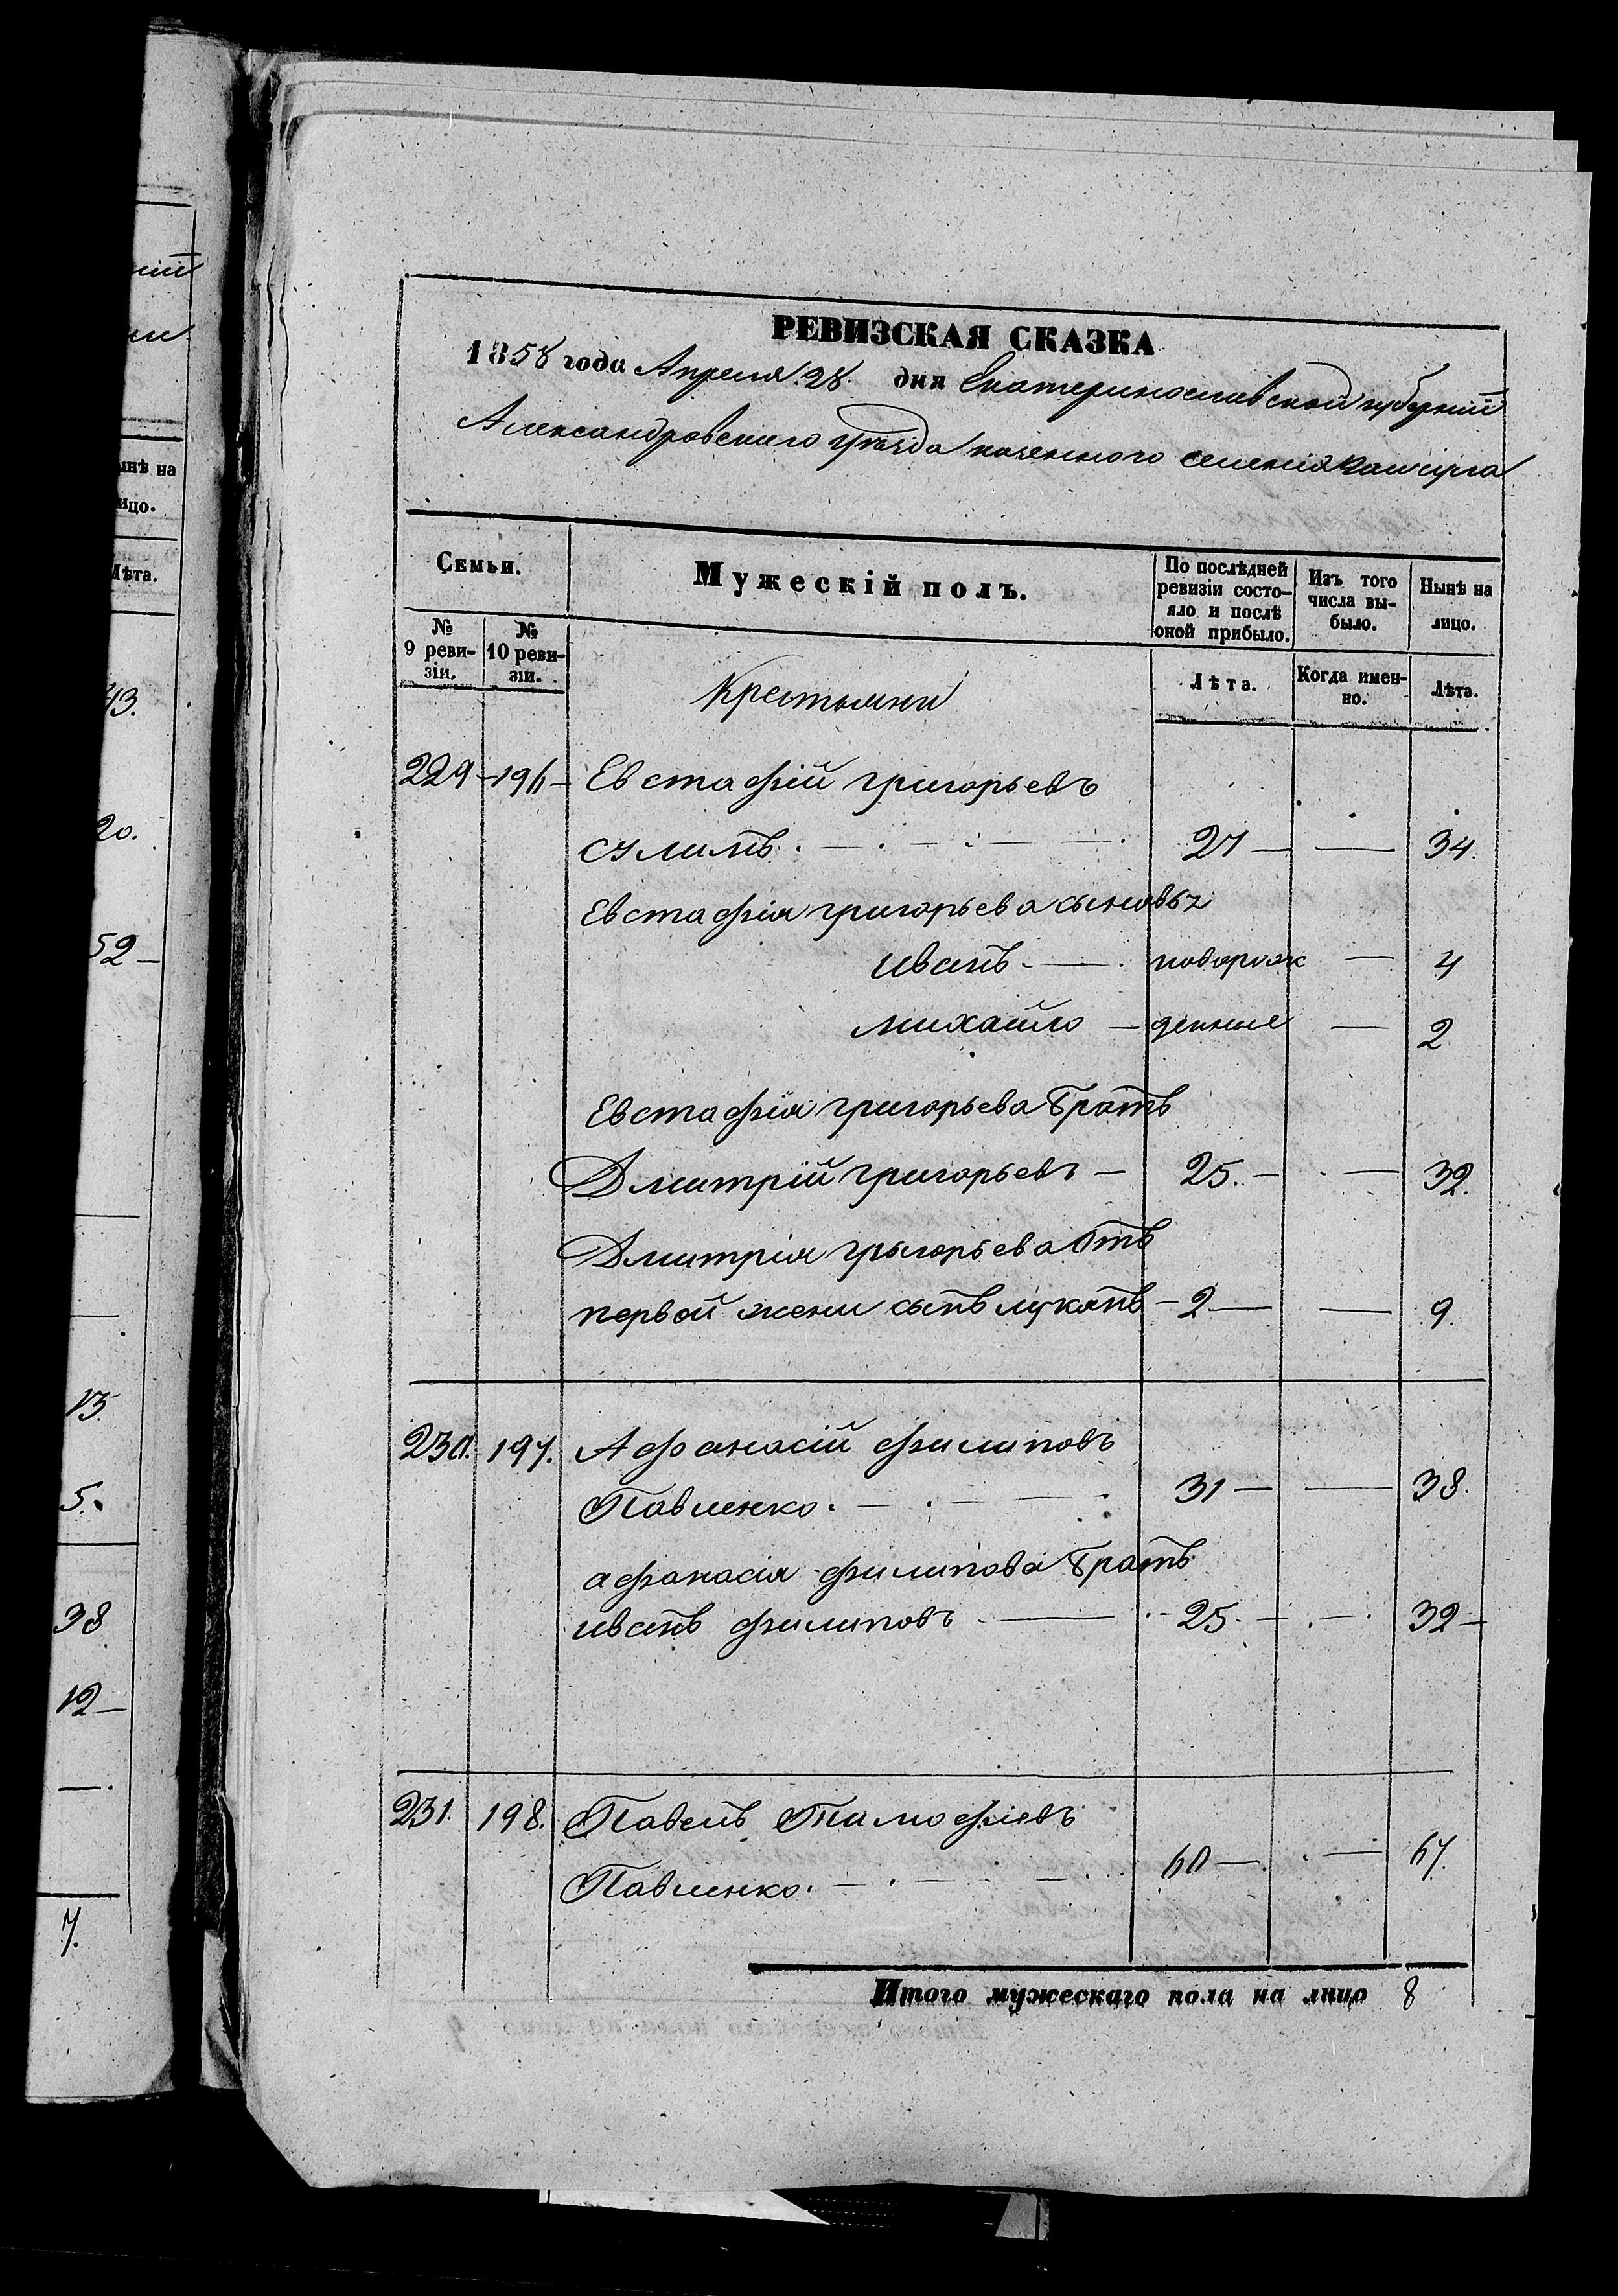 РЕВИЗСКАЯ СКАЗКА
1858 года Апреля 28. дня Екатеринославской губернии
Александровского уезда казенного селения
Семьи.
Мужескій полъ.
По послѣдней ревизіи состо-
яло и послѣ оной прибыло.
Изъ того числа вы-
было.
Нынѣ на лицо.
№ 9 реви-
зіи.
№ 10 реви-
зіи.
Лѣта.
Когда имен-
но.
Лѣта.
Крестьяни
229 – 196 – Евстафій григорьевъ
сулимъ. 27 — — 34.
Евстафія григорьева сыновья
иванъ — новорож — 4
михайло — денные — 2
Евстафія григорьева братъ
Дмитрій григорьевъ — 25. — — 32.
Дмитрія григорьева отъ
первой жени сынъ лукянъ – 2 — — 9.
230. 197. Афанасій филиповъ
Павленко. 31 — — 38.
афанасія филипова братъ
иванъ филиповъ — 25. — — 32 –
231. 198. Павелъ Тимофіевъ
Павленко. 60 — — 67.
Итого мужескаго пола на лицо 8
ынѣ на
ицо.
Лѣта.
43.
20.
52 –
13.
5.
38
12 –
7.